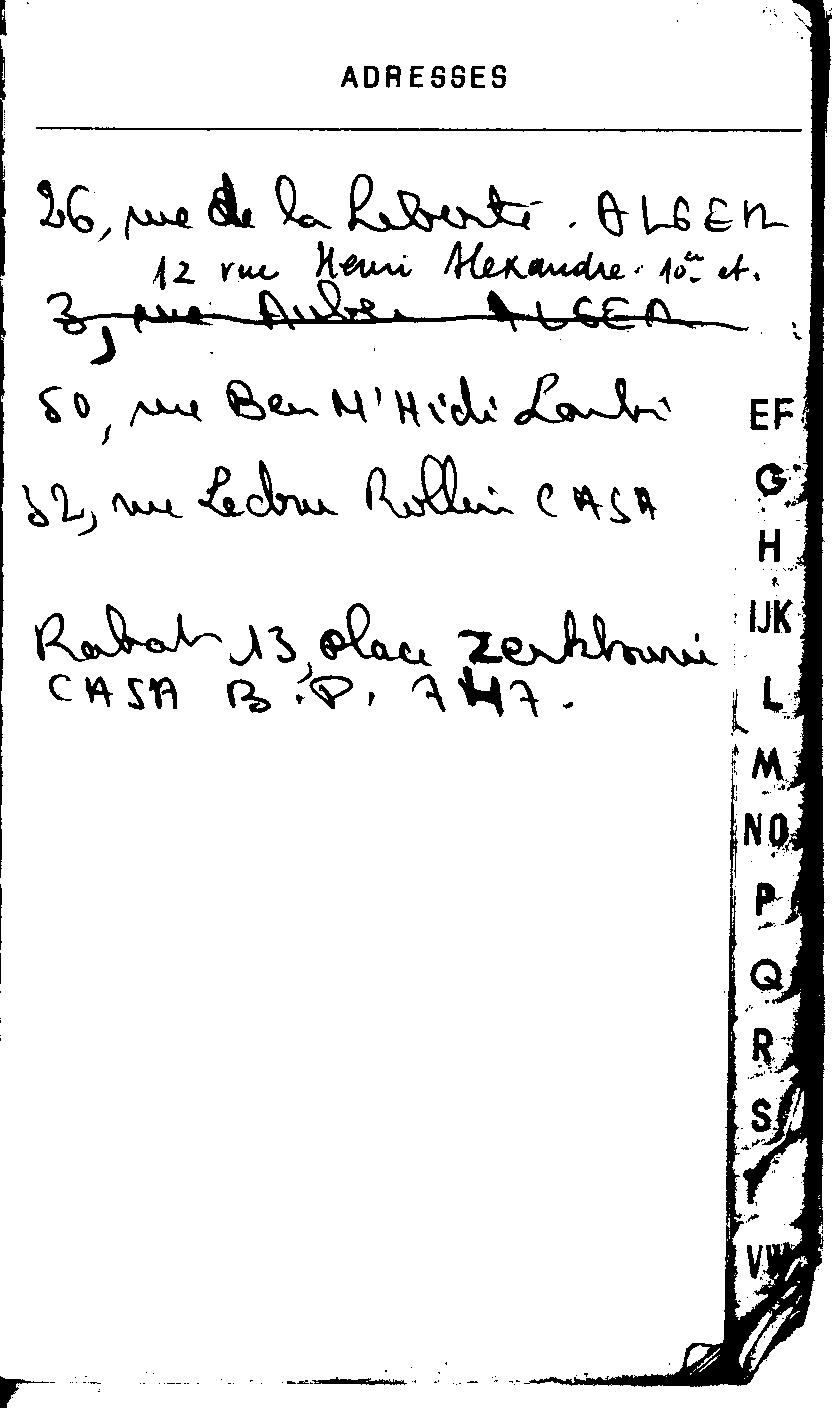 ADRESSES
26, rue de la Liberté. ALGER
12 rue Henri Alexandre. 10e et.
3, rue Auber ALGER
50, rue Ben M'Hidi Larbi
52, rue Ledru Rollin CASA
Rabat 13, place Zerktouni
CASA B.P. 747.
EF
G
H
IJK
L
M
NO
P
Q
R
S
VW